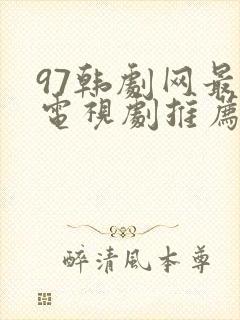 97韩劇网最
電視劇推薦
醉清風本尊